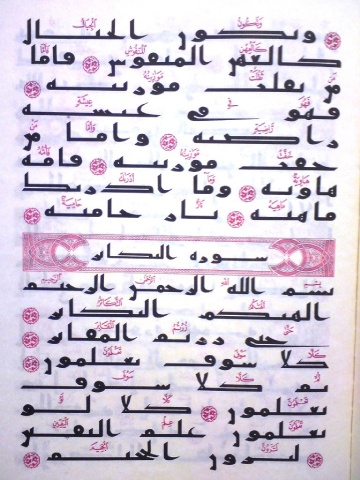 ۝ وتكون الجبال
كالعهن المنفوش ۝ فاما
من ثقلت موزينه ۝
فهو في عيشة
راضية ۝ واما من
خفت موزينه ۝ فامه
هاوية ۝ وما ادريك
ماهيه ۝ نار حامية ۝
سورة التكاثر
بسم الله الرحمن الرحيم
الهيكم التكاثر ۝
حتى زرتم المقابر ۝
كلا سوف تعلمون ۝
ثم كلا سوف
تعلمون ۝ كلا لو
تعلمون علم اليقين ۝
لترون الجحيم ۝